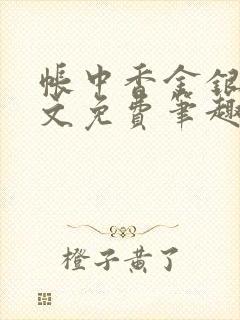 帐中香金银
文免费笔趣
橙子黄了